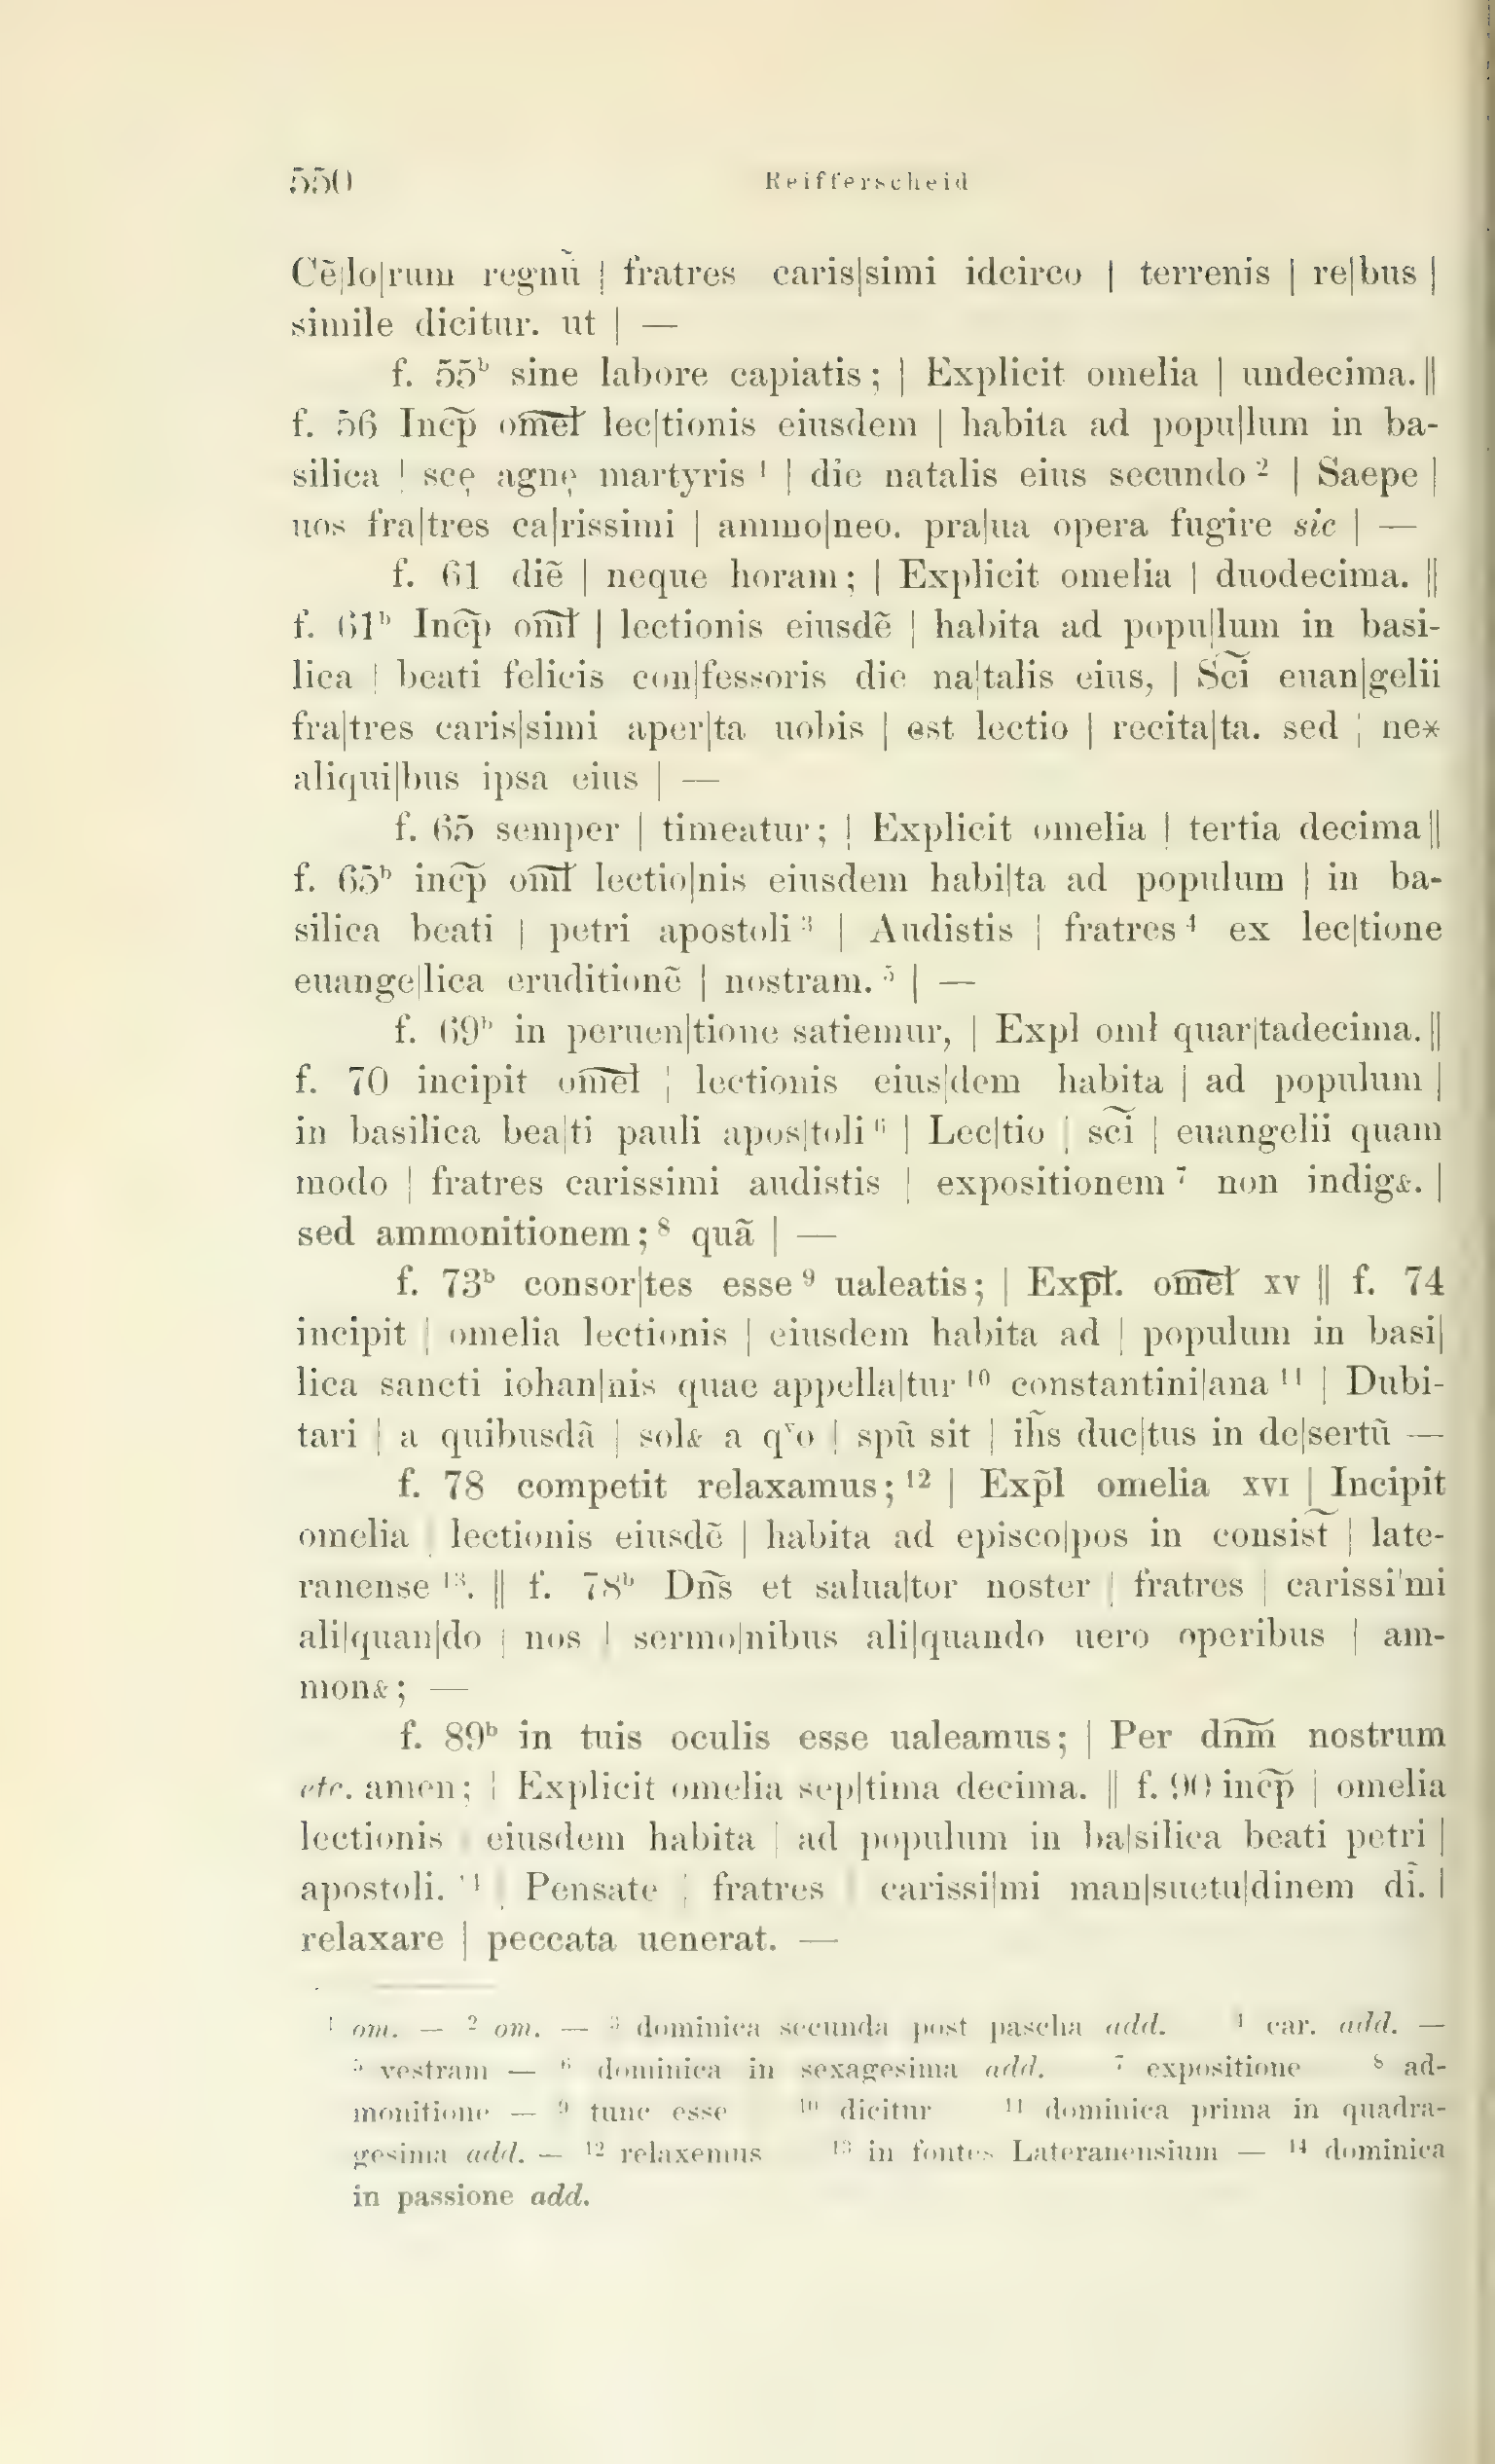 550 Reifferscheid
Cẽ|lo|rum regnũ | fratres caris|simi idcirco | terrenis | re|bus |
simile dicitur. ut | —
f. 55ᵇ sine labore capiatis; | Explicit omelia | undecima. ‖
f. 56 Inc̃p̃ om̅e̅ł lec|tionis eiusdem | habita ad popu|lum in ba-
silica | scę agnę martyris ¹ | die natalis eius secundo ² | Saepe |
uos fra|tres ca|rissimi | ammo|neo. pra|ua opera fugire sic | —
f. 61 diẽ | neque horam; | Explicit omelia | duodecima. ‖
f. 61ᵇ Inc̃p̃ om̅ł | lectionis eiusdẽ | habita ad popu|lum in basi-
lica | beati felicis con|fessoris die na|talis eius, | Sc̃ĩ euan|gelii
fra|tres caris|simi aper|ta uobis | est lectio | recita|ta. sed | ne*
aliqui|bus ipsa eius | —
f. 65 semper | timeatur; | Explicit omelia | tertia decima ‖
f. 65ᵇ inc̃p̃ om̅ł lectio|nis eiusdem habi|ta ad populum | in ba-
silica beati | petri apostoli ³ | Audistis | fratres ⁴ ex lec|tione
euange|lica eruditionẽ | nostram. ⁵ | —
f. 69ᵇ in peruen|tione satiemur, | Expl omł quar|tadecima. ‖
f. 70 incipit om̅e̅l | lectionis eius|dem habita | ad populum |
in basilica bea|ti pauli apos|toli ⁶ | Lec|tio | sc̃ĩ | euangelii quam
modo | fratres carissimi audistis | expositionem ⁷ non indig&. |
sed ammonitionem; ⁸ quã | —
f. 73ᵇ consor|tes esse ⁹ ualeatis; | Exp̅ł. om̅e̅ł xv ‖ f. 74
incipit | omelia lectionis | eiusdem habita ad | populum in basi|
lica sancti iohan|nis quae appella|tur ¹⁰ constantini|ana ¹¹ | Dubi-
tari | a quibusdã | sol& a qᵛo | spũ sit | ih̃s duc|tus in de|sertũ —
f. 78 competit relaxamus; ¹² | Exp̃l omelia xvi | Incipit
omelia | lectionis eiusdẽ | habita ad episco|pos in consist̃ | late-
ranense ¹³. ‖ f. 78ᵇ Dñs et salua|tor noster | fratres | carissi|mi
ali|quan|do | nos | sermo|nibus ali|quando uero operibus | am-
mon&; —
f. 89ᵇ in tuis oculis esse ualeamus; | Per dñm̃ nostrum
etc. amen; | Explicit omelia sep|tima decima. ‖ f. 90 inc̃p̃ | omelia
lectionis | eiusdem habita | ad populum in ba|silica beati petri |
apostoli. ¹⁴ | Pensate | fratres | carissi|mi man|suetu|dinem dĩ. |
relaxare | peccata uenerat. —
¹ om. — ² om. — ³ dominica secunda post pascha add. ⁴ car. add. —
⁵ vestram — ⁶ dominica in sexagesima add. ⁷ expositione ⁸ ad-
monitione — ⁹ tunc esse ¹⁰ dicitur ¹¹ dominica prima in quadra-
gesima add. — ¹² relaxemus ¹³ in fontes Lateranensium — ¹⁴ dominica
in passione add.